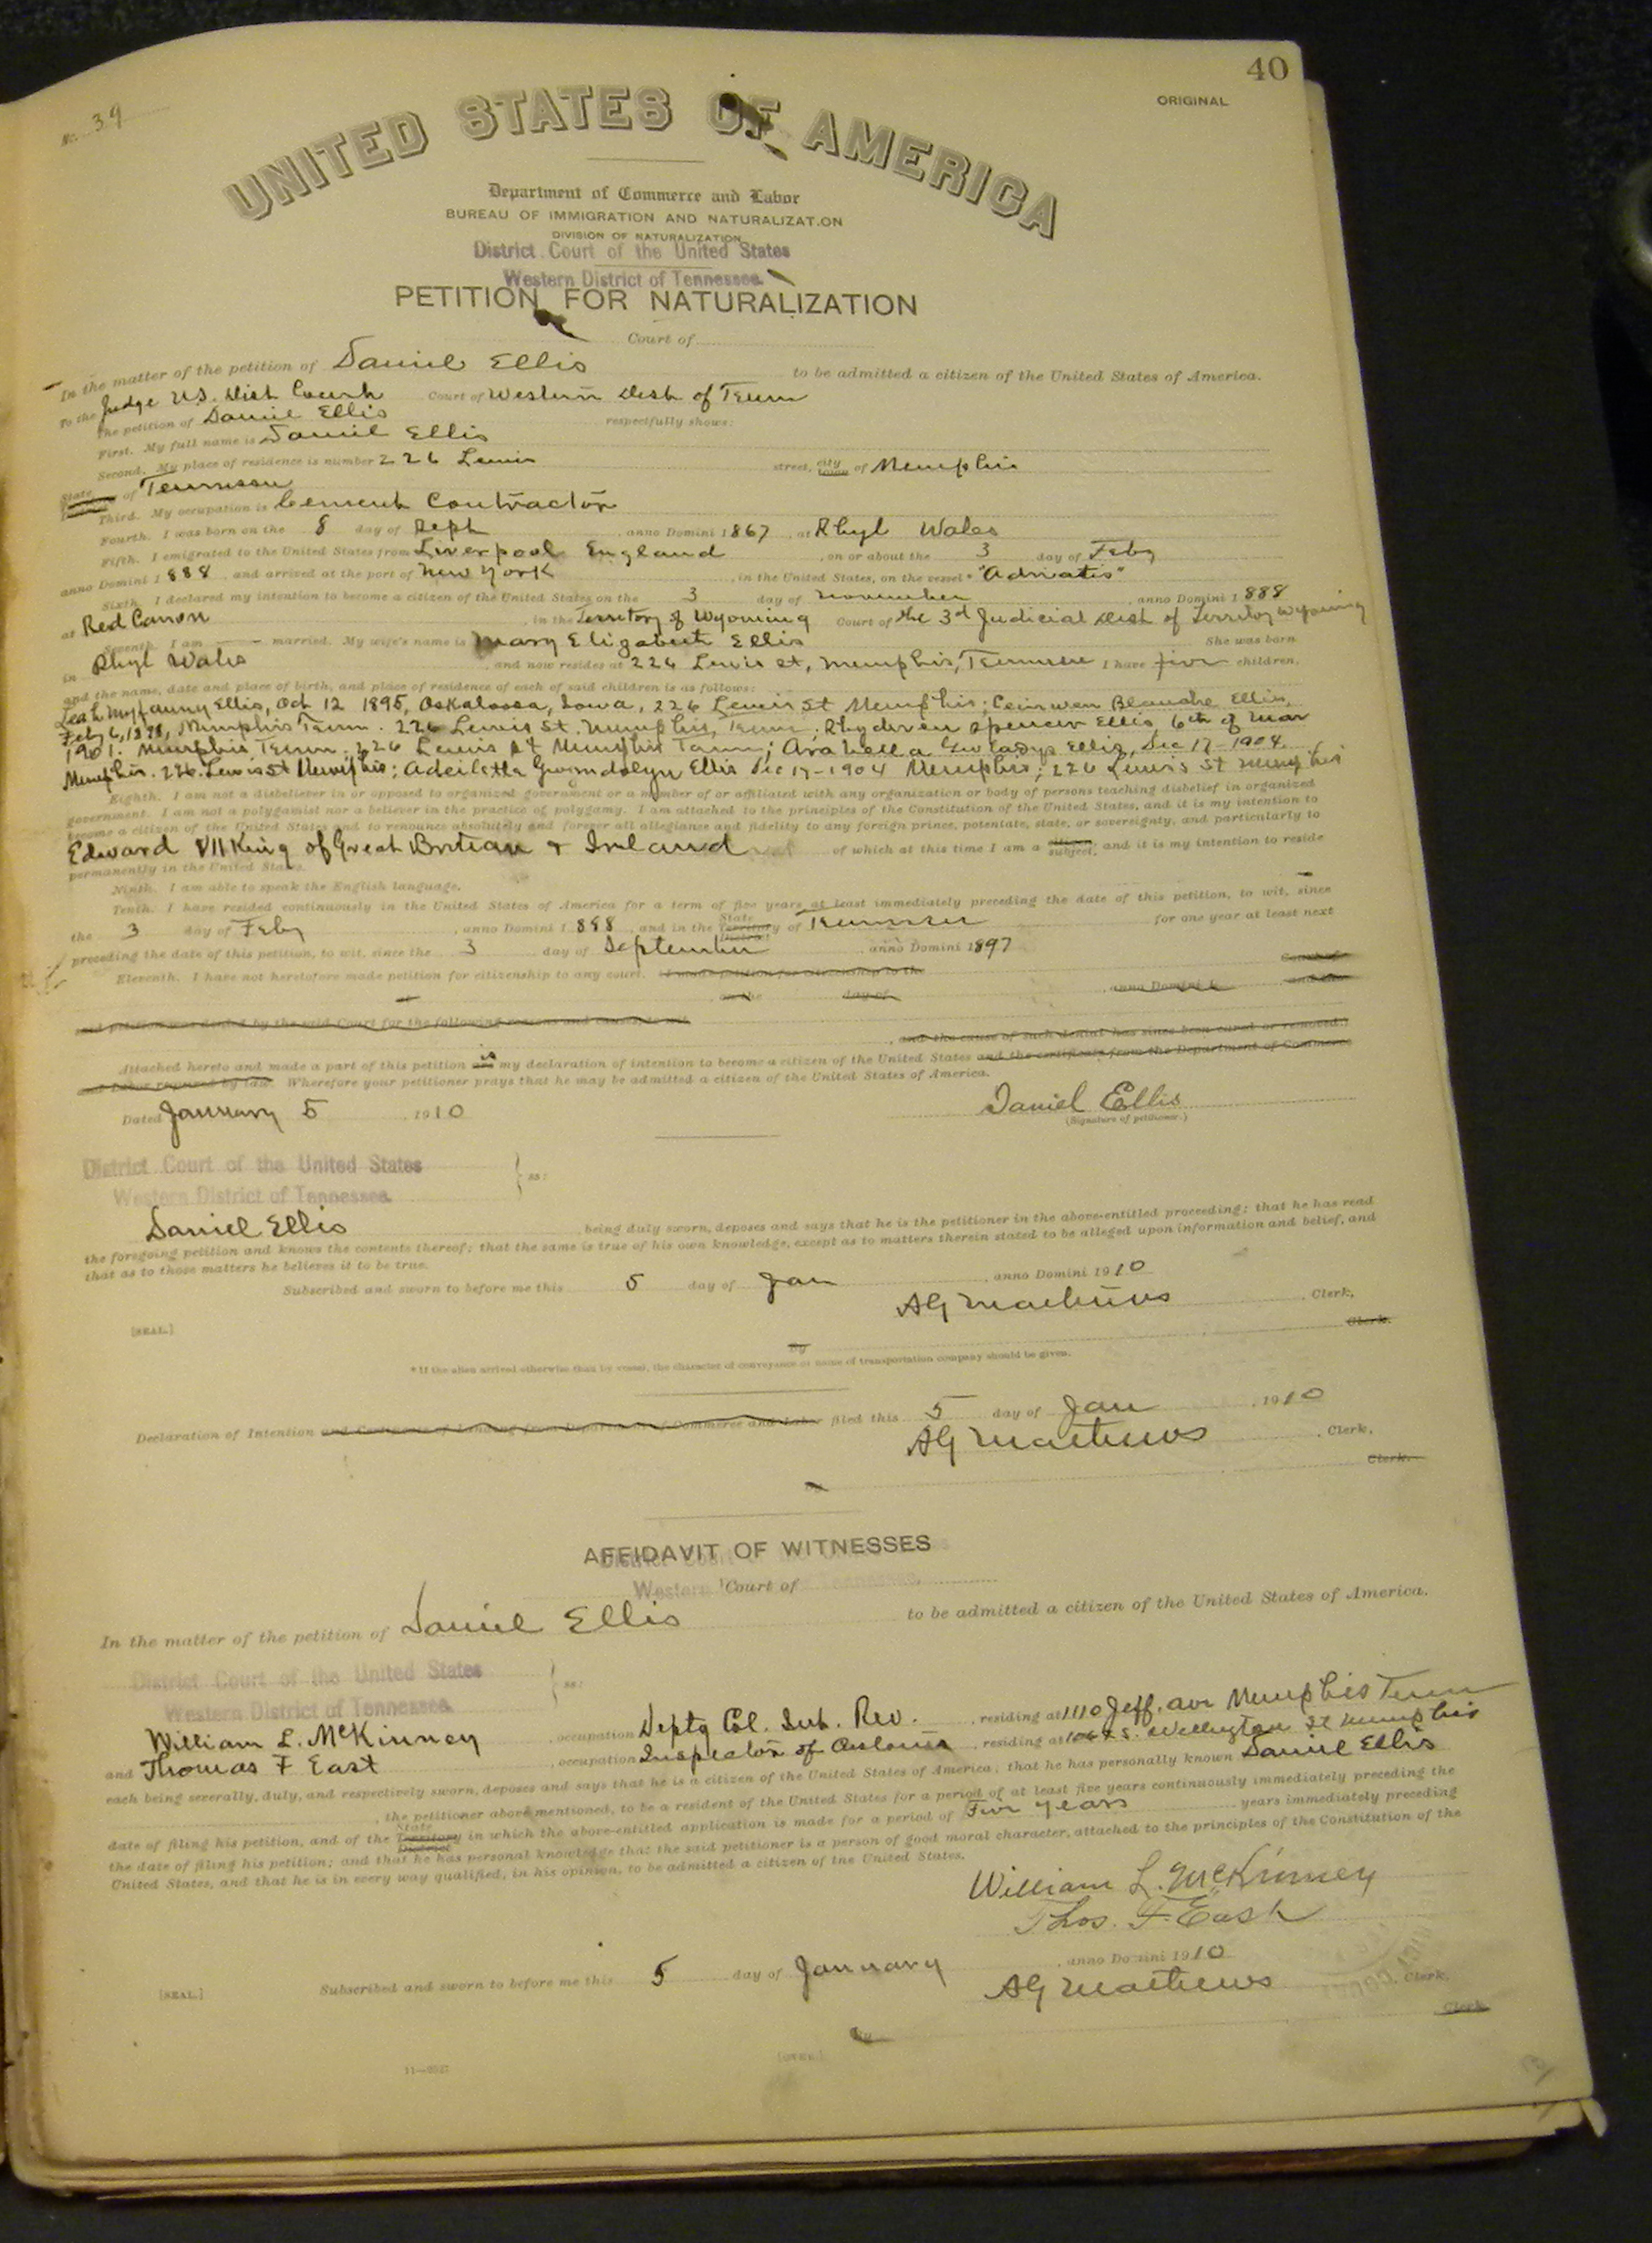 40
ORIGINAL
No. 39
UNITED STATES OF AMERICA
Department of Commerce and Labor
BUREAU OF IMMIGRATION AND NATURALIZATION
DIVISION OF NATURALIZATION
District Court of the United States
Western District of Tennessee.
PETITION FOR NATURALIZATION
Court of
In the matter of the petition of Daniel Ellis to be admitted a citizen of the United States of America.
To the Judge U.S. Dist Court Court of Western Dist of Tenn
The petition of Daniel Ellis respectfully shows:
First. My full name is Daniel Ellis
Second. My place of residence is number 226 Lewis street, city of Memphis
State of Tennessee
Third. My occupation is Cement Contractor
Fourth. I was born on the 8 day of Sept anno Domini 1867, at Rhyl Wales
Fifth. I emigrated to the United States from Liverpool England, on or about the 3 day of Feby
anno Domini 1888, and arrived at the port of New York, in the United States, on the vessel * "Adriatis"
Sixth. I declared my intention to become a citizen of the United States on the 3 day of November, anno Domini 1888
at Red Canon, in the Territory of Wyoming Court of the 3rd Judicial Dist of Territoy Wyoming
Seventh. I am married. My wife's name is Mary Elizabeth Ellis She was born
in Rhyl Wales and now resides at 226 Lewis st, Memphis, Tennessee I have five children,
and the name, date and place of birth, and place of residence of each of said children is as follows:
Leah Ellis, Oct 12 1895, Oskaloosa, Iowa, 226 Lewis St Memphis; Ceinwen Blanche Ellis,
Feby 6, 1898, Memphis Tenn. 226 Lewis St. Memphis, Tenn; Rhydwen Spencer Ellis 6th of Mar
1901. Memphis Tenn. 226 Lewis st Memphis Tenn; Arabella Gwladys Ellis, Dec 17-1904.
Memphis. 226 Lewis St Memphis; Adeiletta Gwendolyn Ellis Dec 17-1904 Memphis; 226 Lewis St Memphis
Eighth. I am not a disbeliever in or opposed to organized government or a member of or affiliated with any organization or body of persons teaching disbelief in organized
government. I am not a polygamist nor a believer in the practice of polygamy. I am attached to the principles of the Constitution of the United States, and it is my intention to
become a citizen of the United States and to renounce absolutely and forever all allegiance and fidelity to any foreign prince, potentate, state, or sovereignty, and particularly to
Edward VII King of Great Britian & Ireland of which at this time I am a subject, and it is my intention to reside
permanently in the United States.
Ninth. I am able to speak the English language.
Tenth. I have resided continuously in the United States of America for a term of five years at least immediately preceding the date of this petition, to wit, since
the 3 day of Feby, anno Domini 1888, and in the State Territory District of Tennessee for one year at least next
preceding the date of this petition, to wit, since the 3 day of September, anno Domini 1897
Eleventh. I have not heretofore made petition for citizenship to any court. I made petition for citizenship to the Court of
at on the day of, anno Domini 1 and the
said petition was denied by the said Court for the following reasons and causes, to wit,
, and the cause of such denial has since been cured or removed.
Attached hereto and made a part of this petition is my declaration of intention to become a citizen of the United States and the certificate from the Department of Commerce
and Labor required by law. Wherefore your petitioner prays that he may be admitted a citizen of the United States of America.
Dated January 5, 1910 Daniel Ellis
(Signature of petitioner.)
District Court of the United States
Western District of Tennessee. } ss:
Daniel Ellis, being duly sworn, deposes and says that he is the petitioner in the above-entitled proceeding; that he has read
the foregoing petition and knows the contents thereof; that the same is true of his own knowledge, except as to matters therein stated to be alleged upon information and belief, and
that as to those matters he believes it to be true.
Subscribed and sworn to before me this 5 day of Jan, anno Domini 1910
[SEAL.] AG Mathews, Clerk.
By Clerk.
* If the alien arrived otherwise than by vessel, the character of conveyance or name of transportation company should be given.
Declaration of Intention and Certificate of Landing from Department of Commerce and Labor filed this 5 day of Jan, 1910
AG Mathews, Clerk.
Clerk.
AFFIDAVIT OF WITNESSES
Western Court of Tennessee.
In the matter of the petition of Daniel Ellis to be admitted a citizen of the United States of America.
District Court of the United States
Western District of Tennessee. } ss:
William L. McKinney, occupation Depty Col. Int. Rev., residing at 1110 Jeff. ave Memphis Tenn
and Thomas F East, occupation Inspector of Customs, residing at S. Wellington St Memphis
each being severally, duly, and respectively sworn, deposes and says that he is a citizen of the United States of America; that he has personally known Daniel Ellis
, the petitioner above mentioned, to be a resident of the United States for a period of at least five years continuously immediately preceding the
date of filing his petition, and of the State Territory District in which the above-entitled application is made for a period of Five years years immediately preceding
the date of filing his petition; and that he has personal knowledge that the said petitioner is a person of good moral character, attached to the principles of the Constitution of the
United States, and that he is in every way qualified, in his opinion, to be admitted a citizen of the United States.
William L. McKinney
Thos. F. East
Subscribed and sworn to before me this 5 day of January, anno Domini 1910
[SEAL.] AG Mathews, Clerk.
By Clerk.
[OVER.]